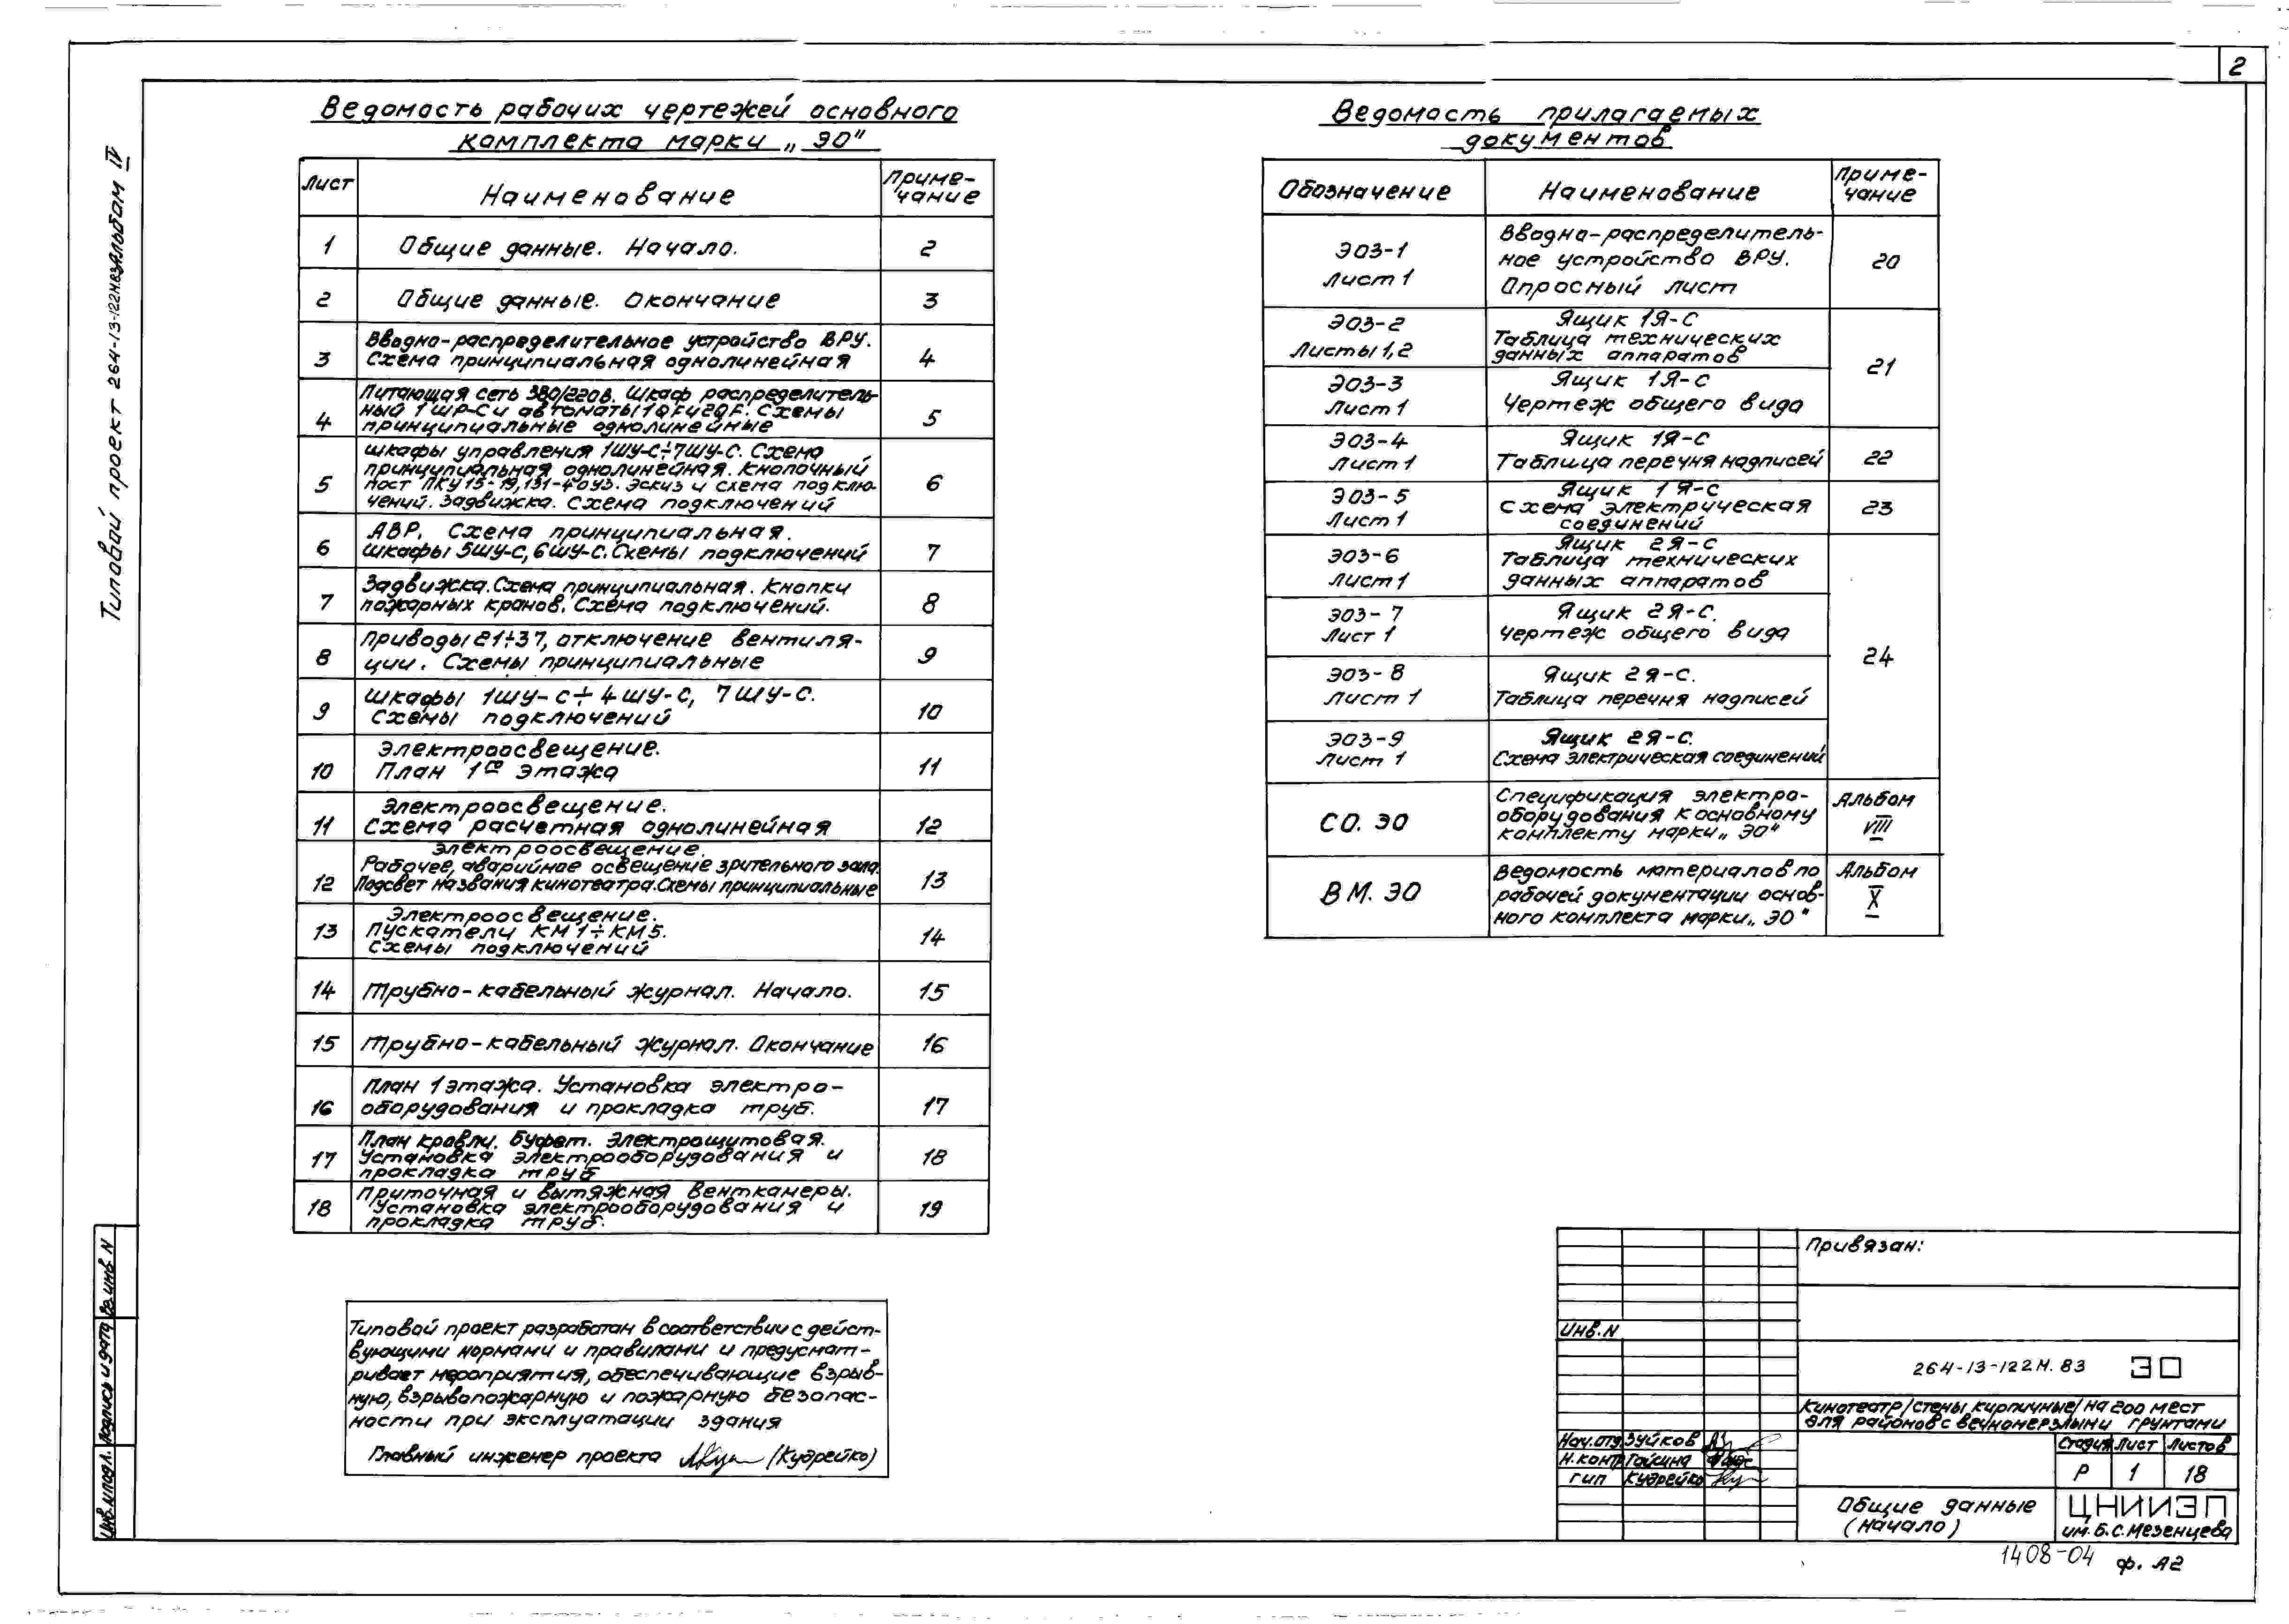 2
Типовой проект 264-13-122м.83 Альбом IV
Ведомость рабочих чертежей основного
комплекта марки „ЭО"
Лист
Наименование
Приме-
чание
1
Общие данные. Начало.
2
2
Общие данные. Окончание
3
3
Вводно-распределительное устройство ВРУ.
Схема принципиальная однолинейная
4
4
Питающая сеть 380/220в. Шкаф распределитель-
ный 1ШР-С и автоматы 1QF и 2QF. Схемы
принципиальные однолинейные
5
5
Шкафы управления 1ШУ-С÷7ШУ-С. Схема
принципиальная однолинейная. Кнопочный
пост ПКУ15-19,131-40У3. Эскиз и схема подклю-
чений. Задвижка. Схема подключений
6
6
АВР. Схема принципиальная.
Шкафы 5ШУ-С, 6ШУ-С. Схемы подключений
7
7
Задвижка. Схема принципиальная. Кнопки
пожарных кранов. Схема подключений.
8
8
Приводы 21÷37, отключение вентиля-
ции. Схемы принципиальные
9
9
Шкафы 1ШУ-С÷4ШУ-С, 7ШУ-С.
Схемы подключений
10
10
Электроосвещение.
План 1го этажа
11
11
Электроосвещение.
Схема расчетная однолинейная
12
12
Электроосвещение.
Рабочее, аварийное освещение зрительного зала.
Подсвет названия кинотеатра. Схемы принципиальные
13
13
Электроосвещение.
Пускатели КМ1÷КМ5.
Схемы подключений
14
14
Трубно-кабельный журнал. Начало.
15
15
Трубно-кабельный журнал. Окончание
16
16
План 1 этажа. Установка электро-
оборудования и прокладка труб.
17
17
План кровли. Буфет. Электрощитовая.
Установка электрооборудования и
прокладка труб
18
18
Приточная и вытяжная венткамеры.
Установка электрооборудования и
прокладка труб.
19
Ведомость прилагаемых
документов
Обозначение
Наименование
Приме-
чание
ЭОЗ-1
Лист 1
Вводно-распределитель-
ное устройство ВРУ.
Опросный лист
20
ЭОЗ-2
Листы 1,2
Ящик 1Я-С
Таблица технических
данных аппаратов
21
ЭОЗ-3
Лист 1
Ящик 1Я-С
Чертеж общего вида
ЭОЗ-4
Лист 1
Ящик 1Я-С
Таблица перечня надписей
22
ЭОЗ-5
Лист 1
Ящик 1Я-С
Схема электрическая
соединений
23
ЭОЗ-6
Лист 1
Ящик 2Я-С
Таблица технических
данных аппаратов
24
ЭОЗ-7
Лист 1
Ящик 2Я-С.
Чертеж общего вида
ЭОЗ-8
Лист 1
Ящик 2Я-С.
Таблица перечня надписей
ЭОЗ-9
Лист 1
Ящик 2Я-С.
Схема электрическая соединений
СО. ЭО
Спецификация электро-
оборудования к основному
комплекту марки „ЭО"
Альбом
VIII
ВМ. ЭО
Ведомость материалов по
рабочей документации основ-
ного комплекта марки „ЭО"
Альбом
X
Типовой проект разработан в соответствии с дейст-
вующими нормами и правилами и предусмат-
ривает мероприятия, обеспечивающие взрыв-
ную, взрывопожарную и пожарную безопас-
ности при эксплуатации здания
Главный инженер проекта (Кудрейко)
Инв.N подл. Подпись и дата Вз.инв.N
Привязан:
Инв.N
264-13-122м.83 ЭО
Кинотеатр /стены кирпичные/ на 200 мест
для районов с вечномерзлыми грунтами
Нач.отд. Зуйков
Н.контр Гайсина
ГИП Кудрейко
Стадия Лист Листов
Р 1 18
Общие данные
(начало)
ЦНИИЭП
им. Б.С. Мезенцева
1408-04
ф. А2